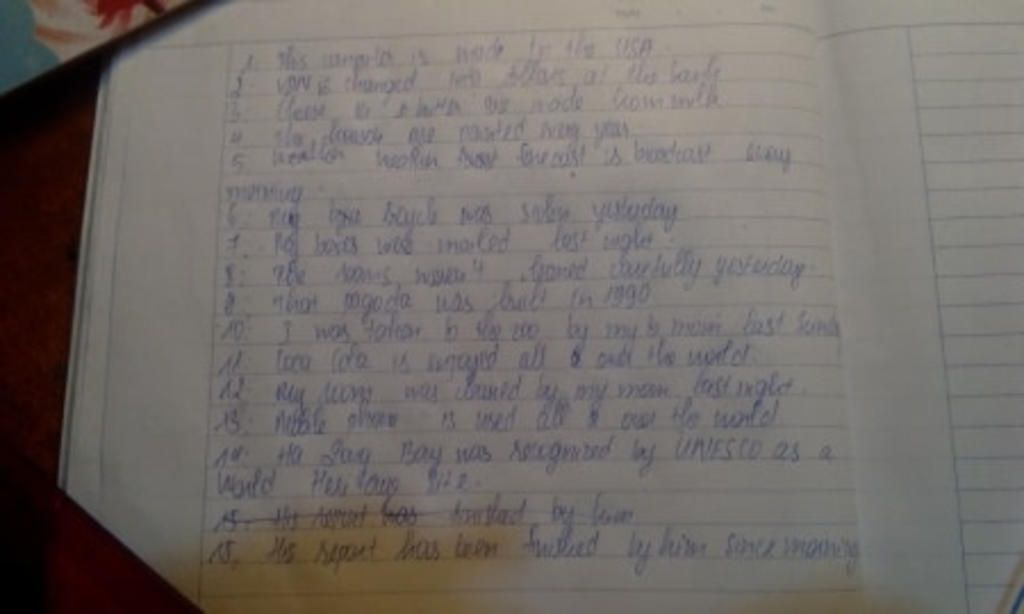 1. This computer is made in the USA.
2. VDN is changed into dollars at the bank
3. are made from milk
4. The houses are painted every year
5. weather forecast is broadcast every
morning.
6. My bicycle was stolen yesterday
7. boxes was mailed last night.
8. The rooms weren't cleaned carefully yesterday.
9. That pagoda was built in 1990
10. I was taken to the zoo by my mom last Sunday
11. Coca Cola is enjoyed all over the world.
12. My room was cleaned by my mom last night.
13. Mobile phone is used all over the world
14. Ha Long Bay was recognized by UNESCO as a
World Heritage Site.
15. His report has finished by him
15. His report has been finished by him since morning